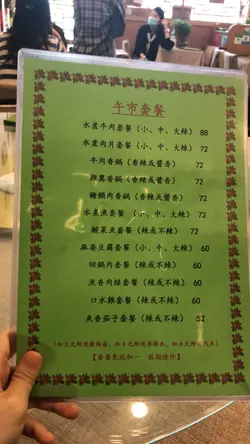 午市套餐
水煮牛肉套餐（小、中、大辣） 88
水煮肉片套餐（小、中、大辣） 72
牛肉香鍋（香辣或醬香） 72
雞翼香鍋（香辣或醬香） 72
豬頸肉香鍋（香辣或醬香） 72
水煮魚套餐（小、中、大辣） 72
酸菜魚套餐（辣或不辣） 72
麻婆豆腐套餐（小、中、大辣） 60
回鍋肉套餐（辣或不辣） 60
魚香肉絲套餐（辣或不辣） 60
口水雞套餐（辣或不辣） 60
魚香茄子套餐（辣或不辣） 52
【套餐免茶加一 假期除外】